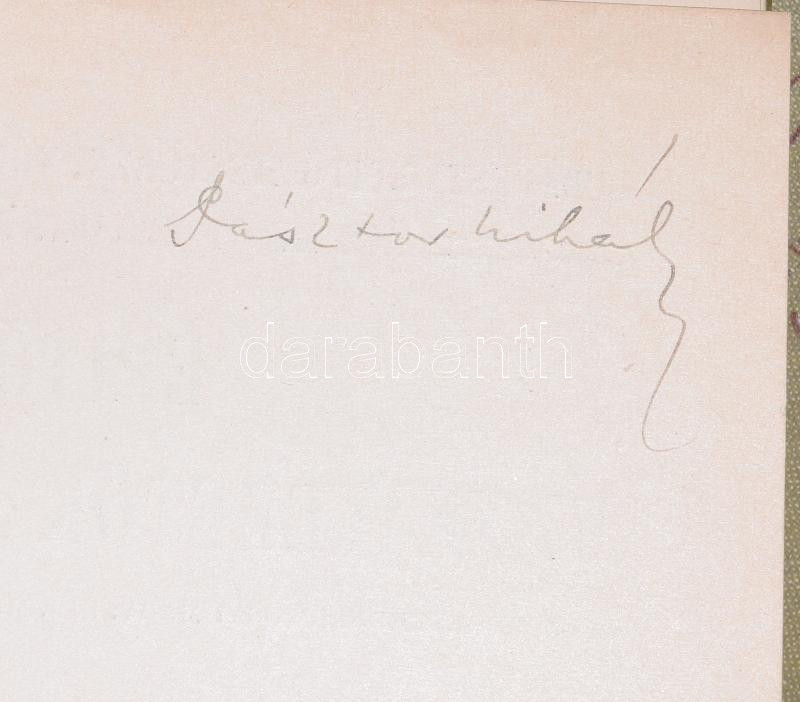 Pásztor Mihály
darabanth